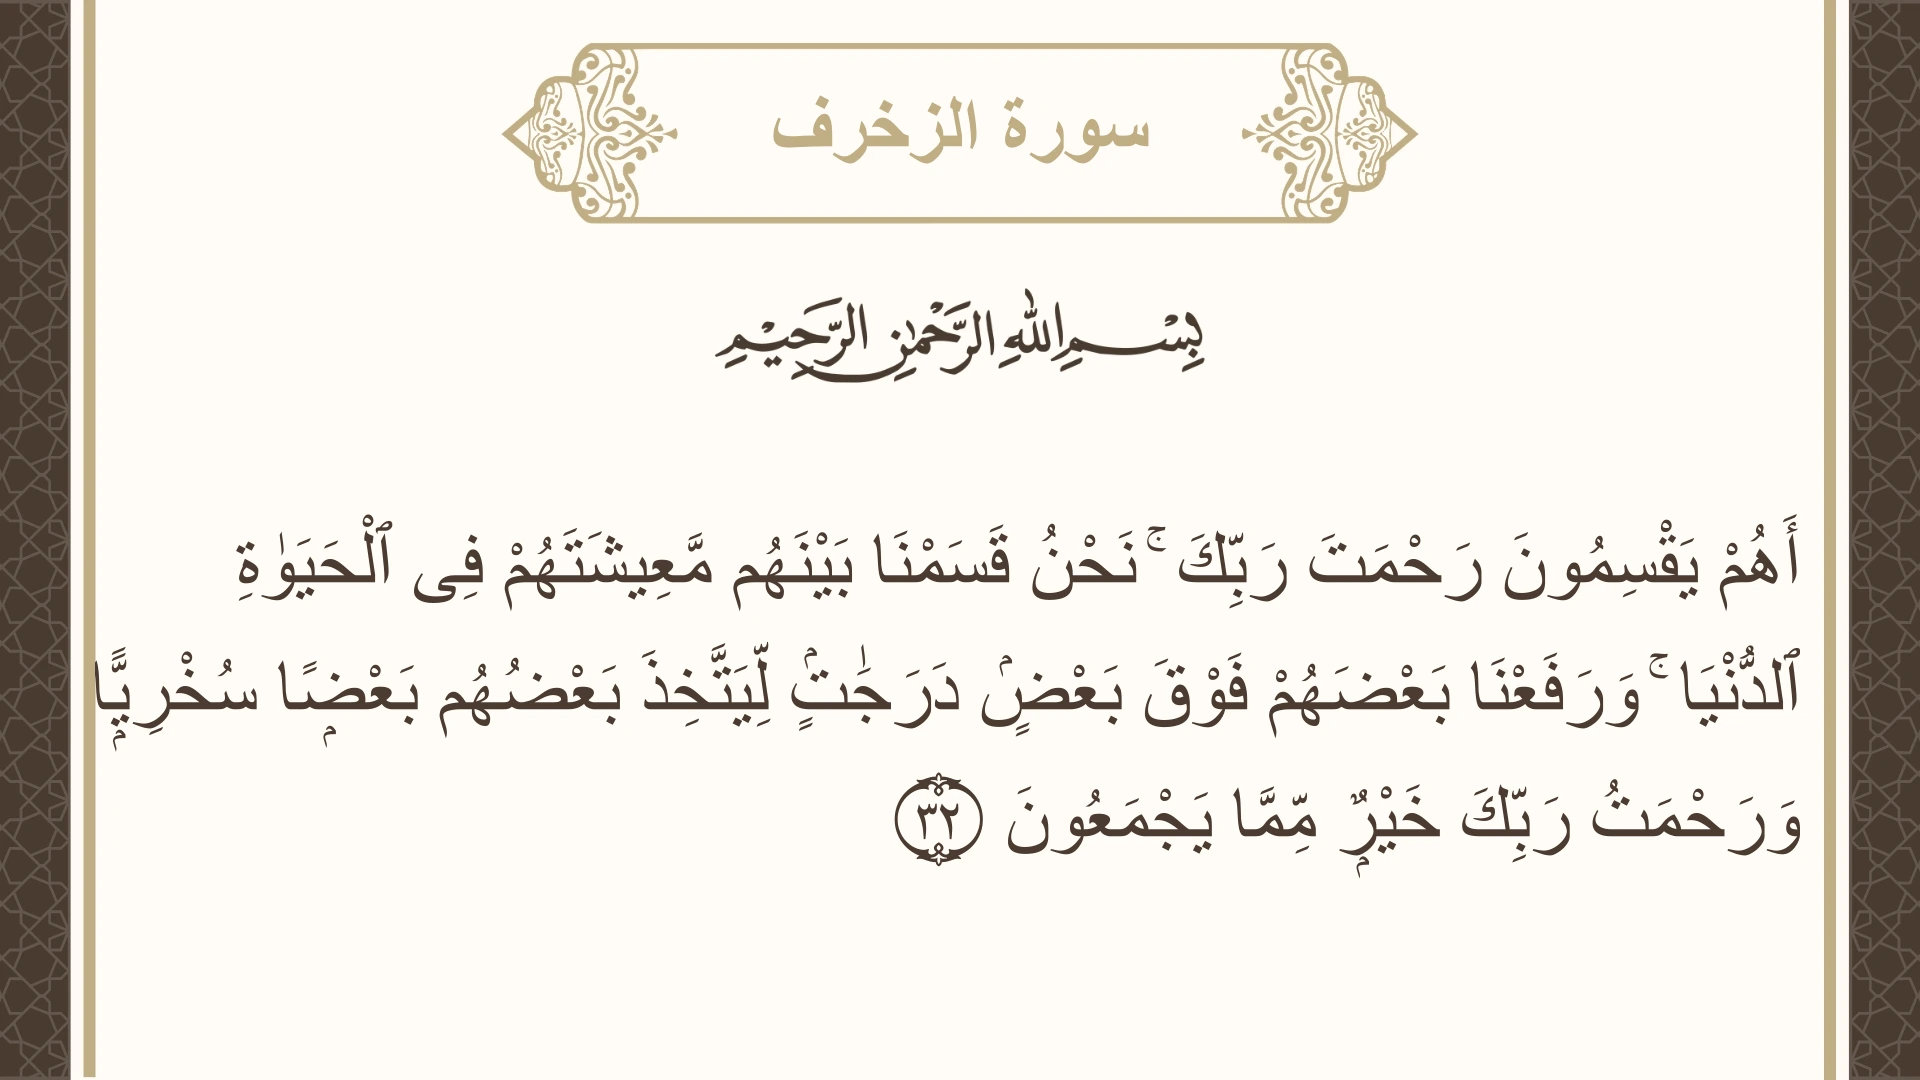 سورة الزخرف
بِسْمِ اللهِ الرَّحْمٰنِ الرَّحِيْمِ
أَهُمْ يَقْسِمُونَ رَحْمَتَ رَبِّكَ ۚ نَحْنُ قَسَمْنَا بَيْنَهُم مَّعِيشَتَهُمْ فِى ٱلْحَيَوٰةِ
ٱلدُّنْيَا ۚ وَرَفَعْنَا بَعْضَهُمْ فَوْقَ بَعْضٍۢ دَرَجَٰتٍۢ لِّيَتَّخِذَ بَعْضُهُم بَعْضًۭا سُخْرِيًّۭا
وَرَحْمَتُ رَبِّكَ خَيْرٌۭ مِّمَّا يَجْمَعُونَ ٣٢